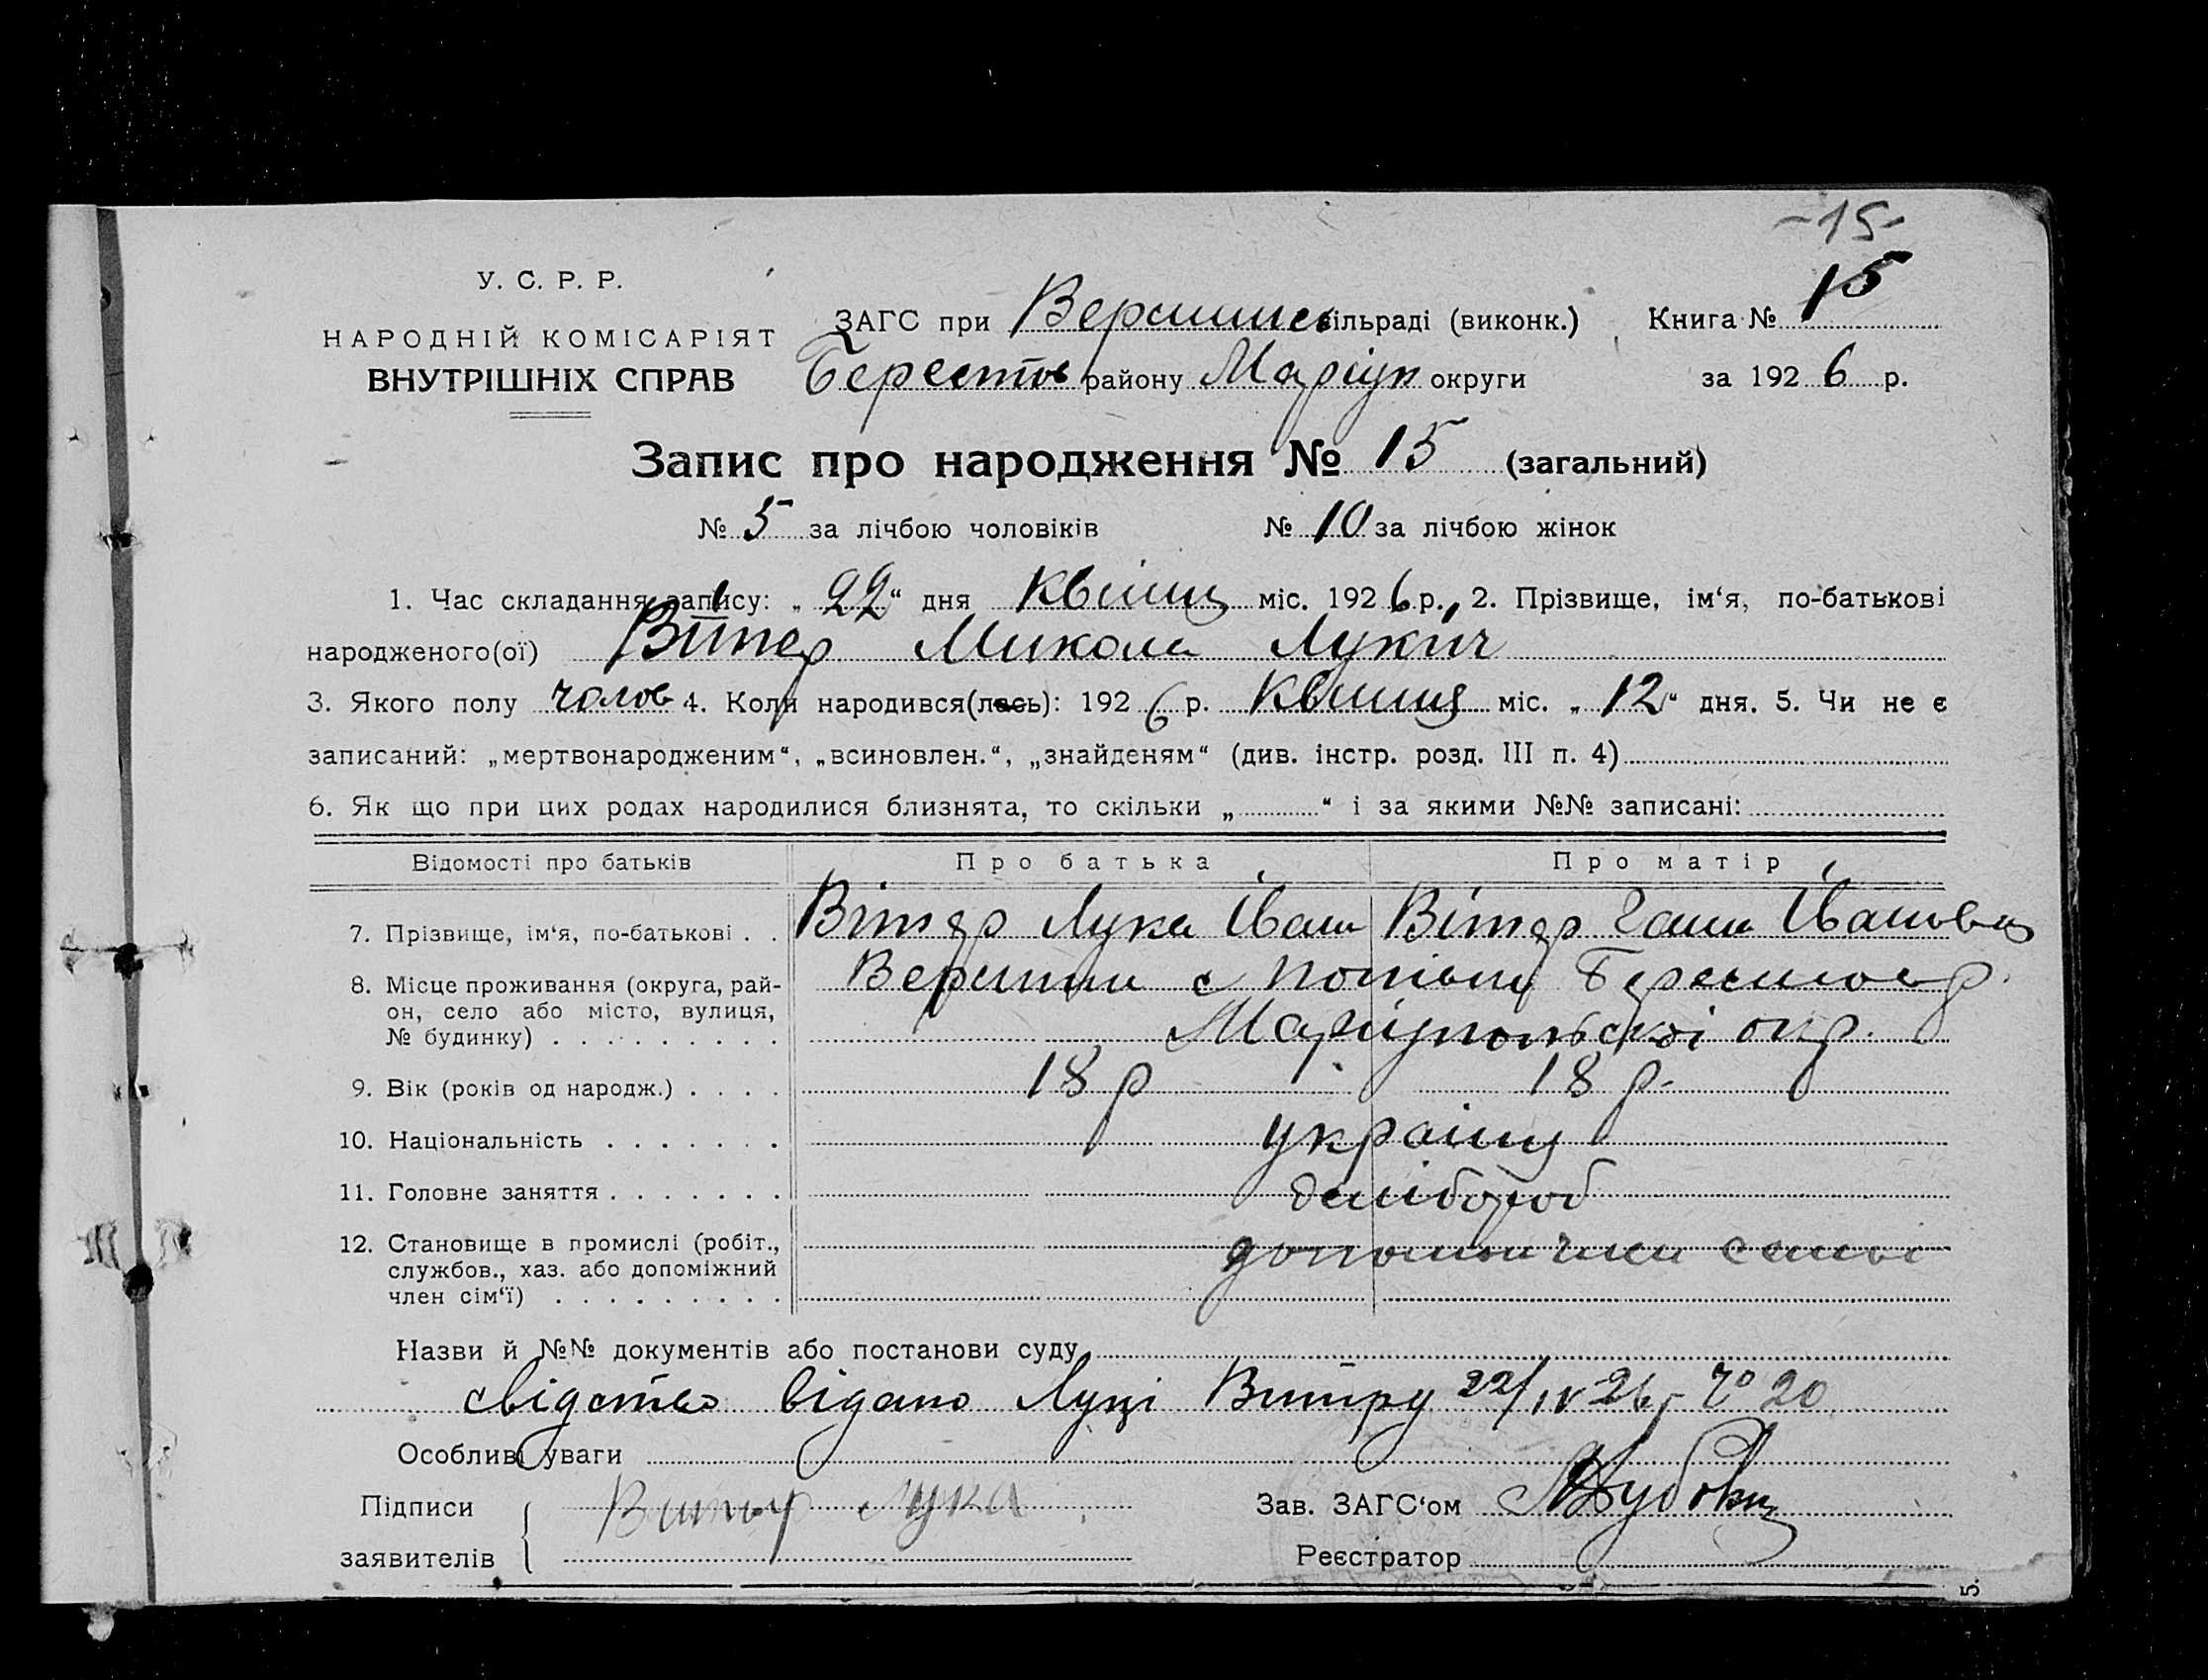 -15-
У. С. Р. Р.
НАРОДНІЙ КОМІСАРІЯТ
ВНУТРІШНІХ СПРАВ
ЗАГС при Вершинс сільраді (виконк.) Книга № 15
Берестов району Маріуп округи за 1926 р.
Запис про народження № 15 (загальний)
№ 5 за лічбою чоловіків № 10 за лічбою жінок
1. Час складання запису: „22“ дня Квітня міс. 1926 р., 2. Прізвище, ім‘я, по-батькові
народженого(ої) Вітер Микола Лукич
3. Якого полу чолов 4. Коли народився(лась): 1926 р. Квітня міс. „12“ дня. 5. Чи не є
записаний: „мертвонародженим“, „всиновлен.“, „знайденям“ (див. інстр. розд. III п. 4)
6. Як що при цих родах народилися близнята, то скільки „ “ і за якими №№ записані:
Відомості про батьків Про батька Про матір
7. Прізвище, ім‘я, по-батькові . . Вітер Лука Іван Вітер Ганна Івановна
8. Місце проживання (округа, рай-
он, село або місто, вулиця,
№ будинку) . . . . . . . . .
Вершини с Попівки Берестов р.
Маріупольскоі окр.
9. Вік (років од народж.) . . . . 18 р 18 р.
10. Національність . . . . . . . україн
11. Головне заняття . . . . . . . хлібороб
12. Становище в промислі (робіт.,
службов., хаз. або допоміжний
член сім‘ї) . . . . . . . . .
Назви й №№ документів або постанови суду
свідство відано Луці Витру 22/IV 26 р № 20
Особливі уваги
Підписи
заявителів
Витер Лука
Зав. ЗАГС‘ом
Реєстратор
5.